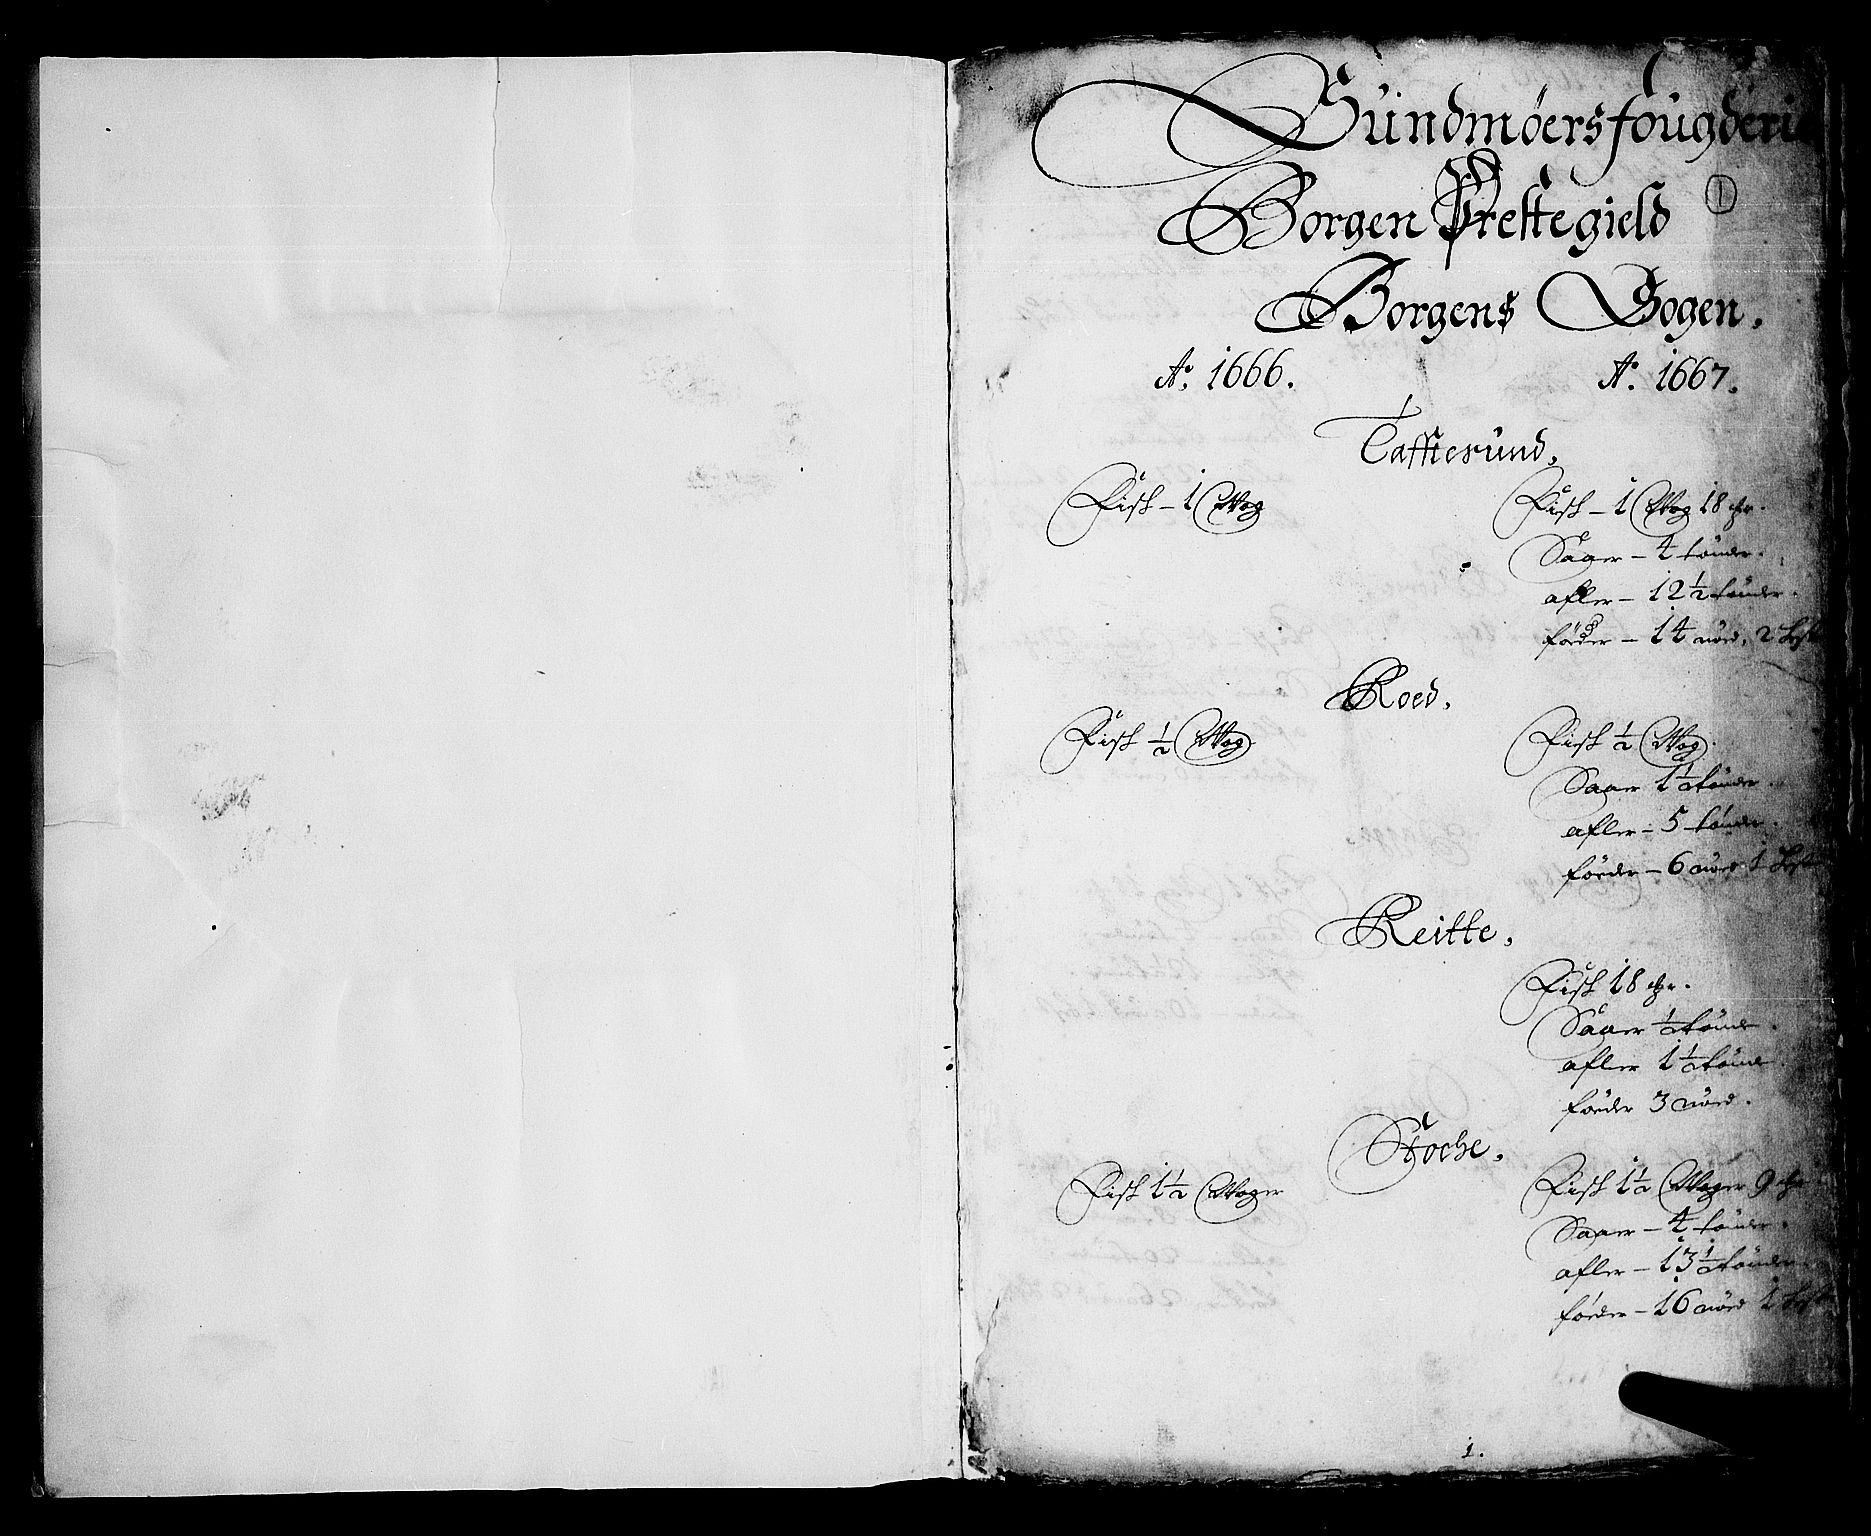 Sündmöersfougderie
Borgen Prestegield
1
Borgens Sogen.
Ao. 1666. Ao. 1667.
Tafftesund.
Fisk – 1 Wog
Fisk – 1 Wog 18 mr.
Saaer – 4 tönder.
afler – 12 ½ tönder.
föeder – 14 nöed, 2 hest
Roed.
Fisk ½ Wog
Fisk ½ Wog.
Saaer 1 ½ tönder.
afler – 5 tönder.
föeder – 6 nöed 1 hest
Reitte.
Fisk 18 mr.
Saaer ½ tönde.
afler 1 ½ tönde
föeder 3 nöed.
Stoche.
Fisk 1 ½ Woger
Fisk 1 ½ Woger 9 mr
Saaer – 4 tönder.
afler – 13 ½ tönder
föeder – 16 nöed 1 hest
1.